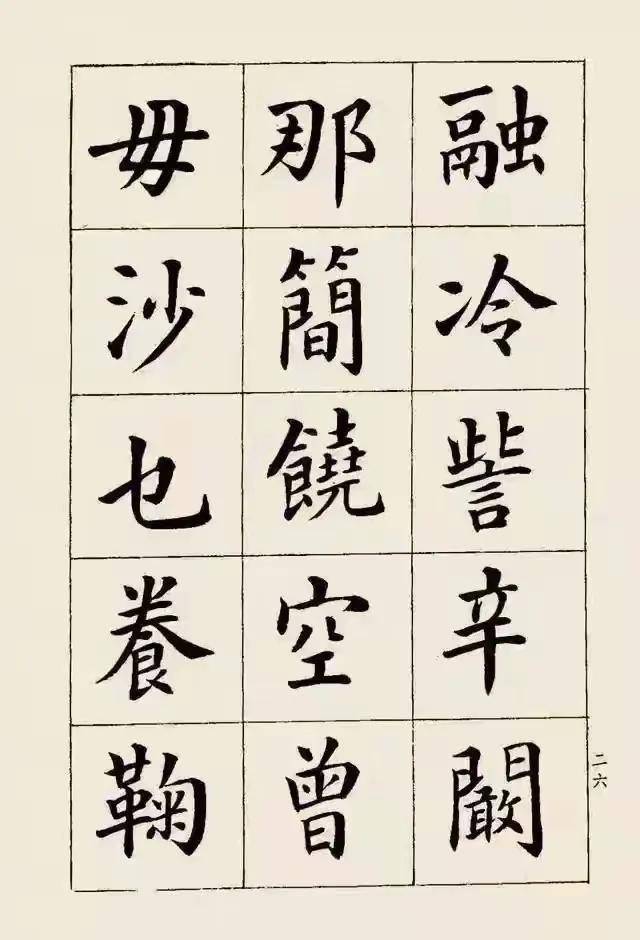 融冷訾辛闞
那簡饒空曾
毋沙乜養鞠
二六